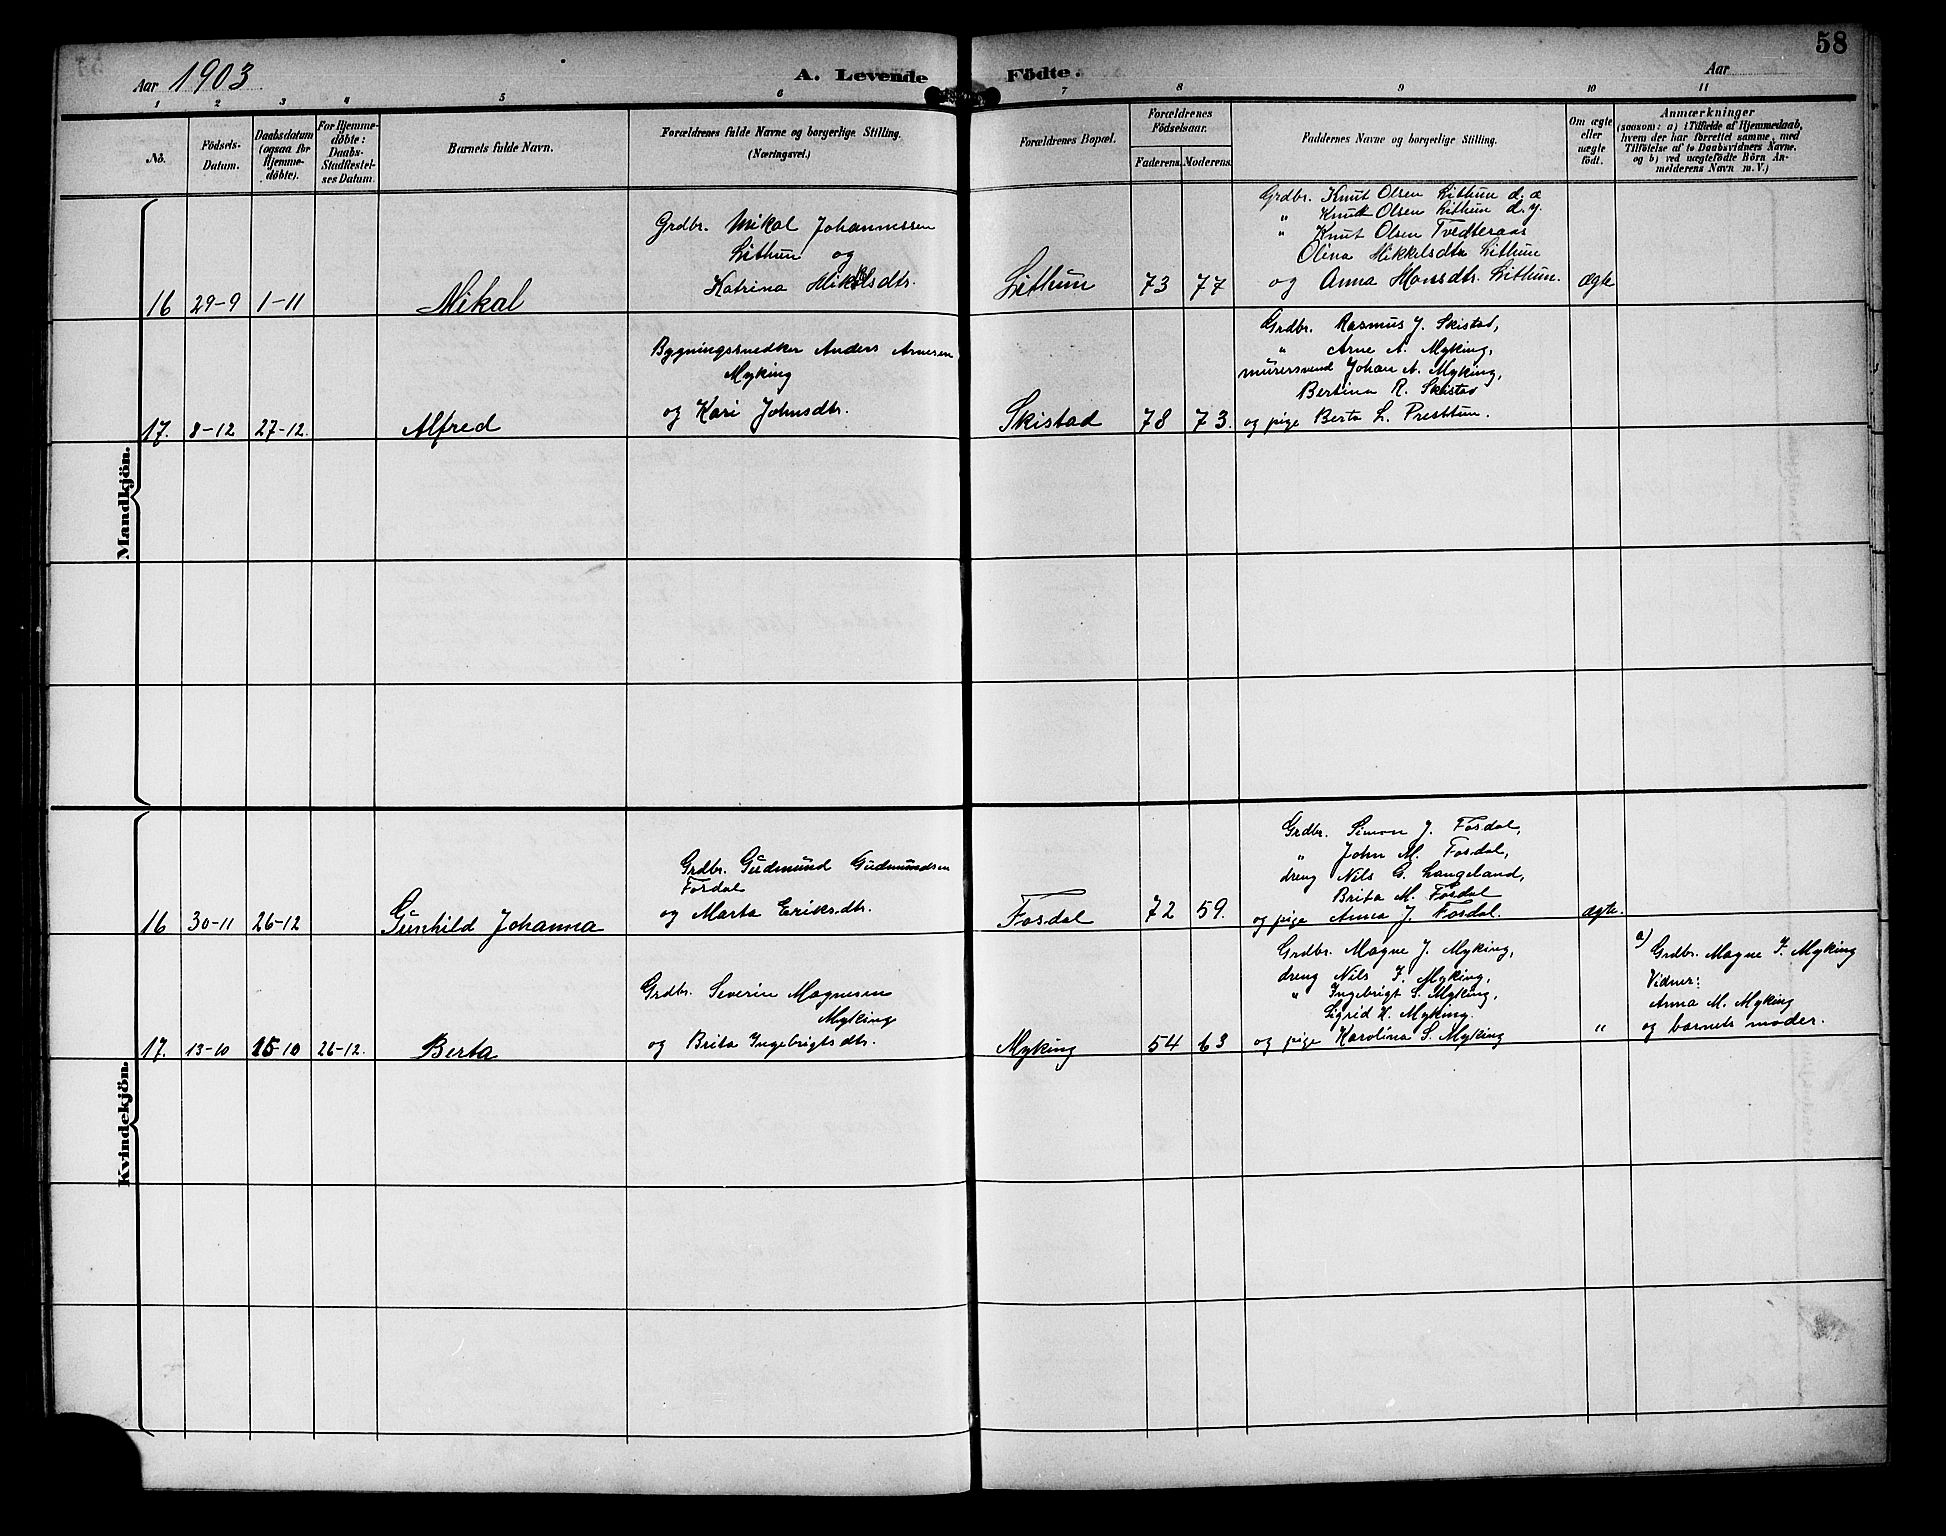 58
Aar 1903
A. Levende Födte.
Aar
1 2 3 4 5 6 7 8 9 10 11
No.
Födsels-
Datum.
Daabsdatum
(ogsaa for
Hjemme-
döbte).
For Hjemme-
döbte:
Daabs-
Stadfæstel-
ses Datum.
Barnets fulde Navn.
Forældrenes fulde Navne og borgerlige Stilling.
(Næringsvei.)
Forældrenes Bopæl.
Forældrenes
Födselsaar.
Faderens.
Moderens.
Faddernes Navne og borgerlige Stilling.
Om ægte
eller
uægte
födt.
Anmærkninger
(saasom: a) i Tilfælde af Hjemmedaab,
hvem der har forrettet samme, med
Tilföielse af to Daabsvidners Navne,
og b) ved uægtefödte Börn An-
melderens Navn m. V.)
Mandkjön.
16 29-9 1-11
Mikal
Grdbr. Mikal Johannessen
Lithun og
Katrina Mikkelsdtr.
Lithun 73 77
Grdbr. Knut Olsen Lithun d. æ
" Knut Olsen Lithun d. y.
" Knut Olsen Tvedteraas
Olina Mikkelsdtr Lithun
og Anna Hansdtr. Lithun.
ægte
17. 8-12 27-12.
Alfred
Bygningssnedker Anders Arnesen
Myking
og Kari Johnsdtr.
Skistad 78 73.
Grdbr. Rasmus J. Skistad,
" Arne A. Myking,
murersvend Johan A. Myking,
Bertina R. Skistad
og pige Berta L. Presttun.
Kvindekjön.
16 30-11 26-12
Gunhild Johanna
Grdbr. Gudmund Gudmundsen
Fosdal
og Marta Eriksdtr.
Fosdal 72 59.
Grdbr. Simon J. Fosdal,
" John M. Fosdal,
dreng Nils G. Langeland,
Brita M. Fosdal
og pige Anna J. Fosdal.
ægte.
17. 13-10 15-10 26-12.
Berta
Grdbr. Severin Magnesen
Myking
og Brita Ingebrigtsdtr.
Myking 54 63
Grdbr. Magne J. Myking,
dreng Nils J. Myking,
" Ingebrigt S. Myking,
Sigrid K. Myking.
og pige Karolina S. Myking
"
a) Grdbr. Magne J. Myking
Vidner:
Anna M. Myking
og barnets moder.